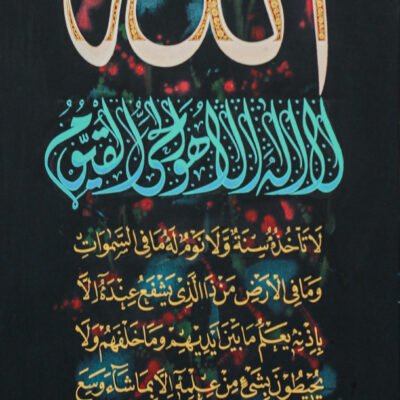 الله
لا اله الا هو الحي القيوم
لَا تَأْخُذُهُ سِنَةٌ وَّلَا نَوْمٌ لَهُ مَا فِي السَّمٰوَاتِ
وَمَا فِي الْاَرْضِ مَنْ ذَا الَّذِيْ يَشْفَعُ عِنْدَهٗ اِلَّا
بِاِذْنِهٖ يَعْلَمُ مَا بَيْنَ اَيْدِيْهِمْ وَمَا خَلْفَهُمْ وَلَا
يُحِيْطُوْنَ بِشَيْءٍ مِنْ عِلْمِهٖ اِلَّا بِمَا شَاءَ وَسِعَ